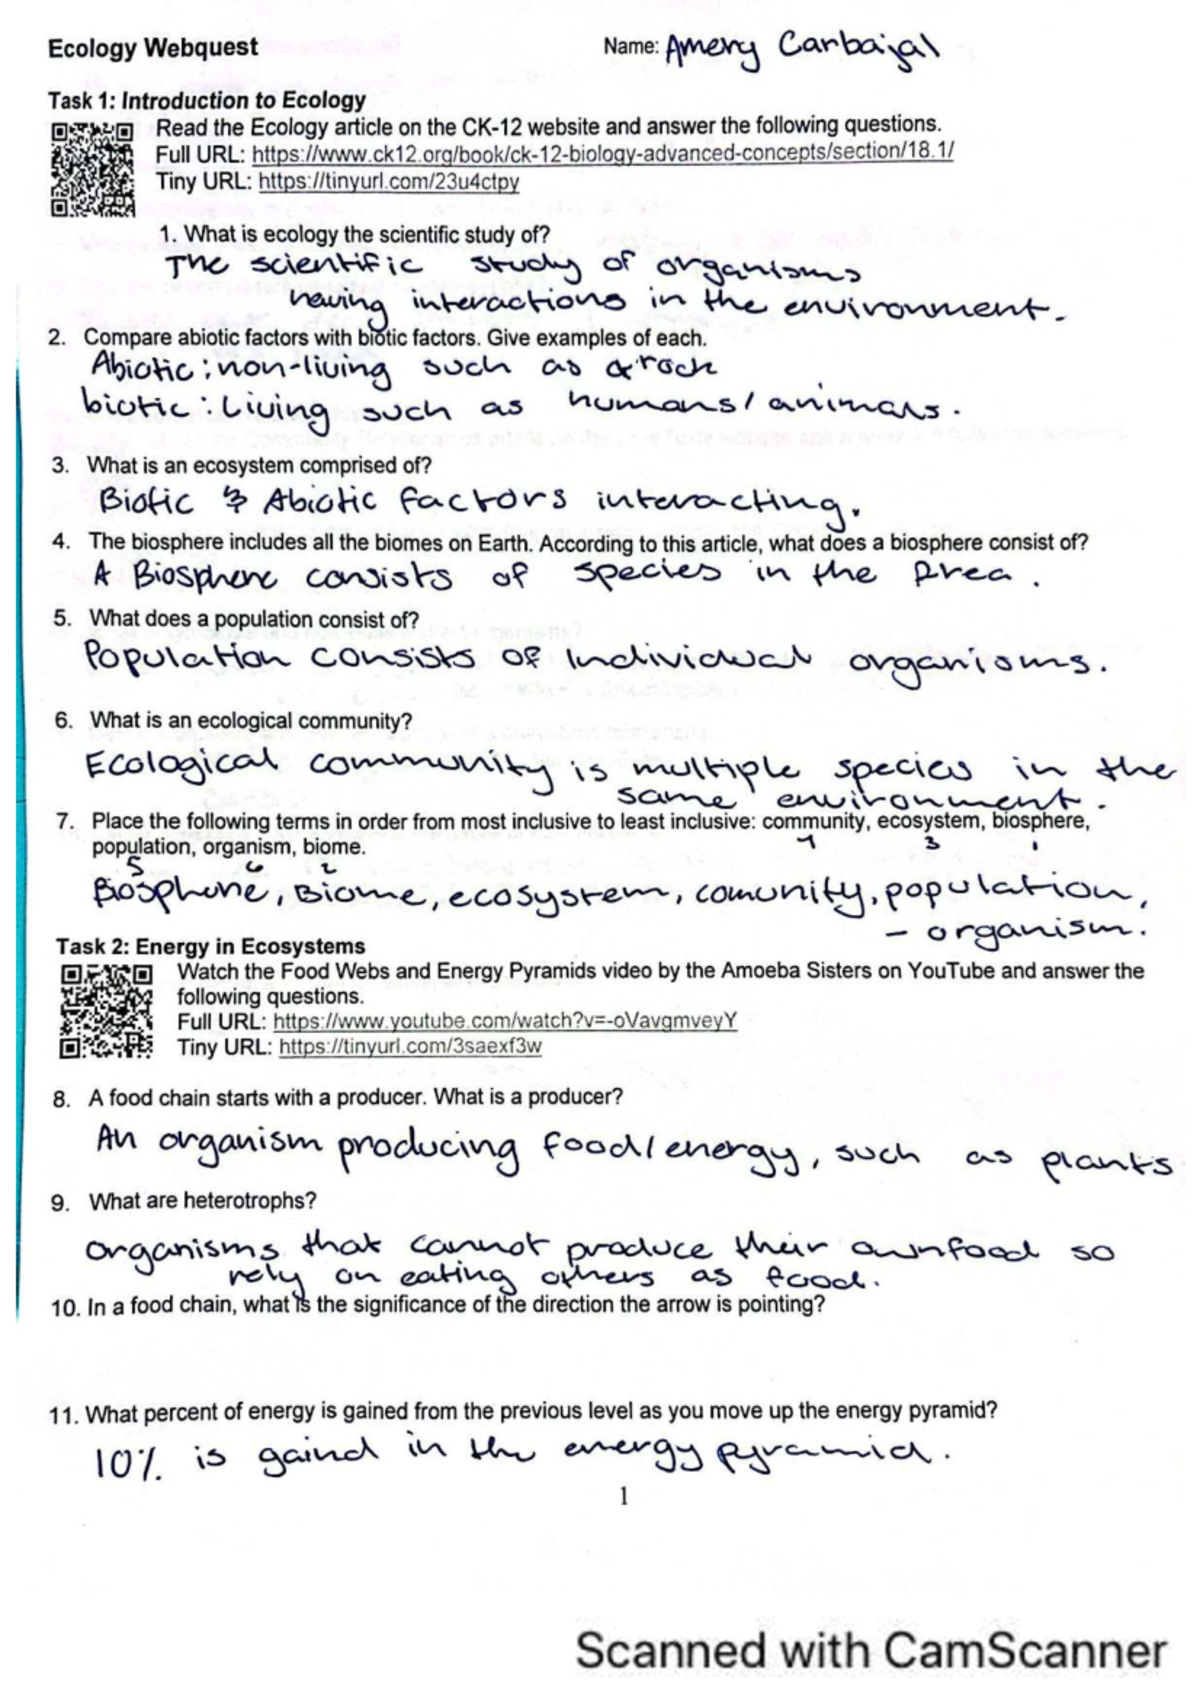 Ecology Webquest
Name: Amery Carbajal
Task 1: Introduction to Ecology
Read the Ecology article on the CK-12 website and answer the following questions.
Full URL: https://www.ck12.org/book/ck-12-biology-advanced-concepts/section/18.1/
Tiny URL: https://tinyurl.com/23u4ctpy
1. What is ecology the scientific study of?
The scientific study of organisms
having interactions in the environment.
2. Compare abiotic factors with biotic factors. Give examples of each.
Abiotic: non-living such as a rock
biotic: Living such as humans/animals.
3. What is an ecosystem comprised of?
Biotic & Abiotic factors interacting.
4. The biosphere includes all the biomes on Earth. According to this article, what does a biosphere consist of?
A Biosphere consists of species in the Area.
5. What does a population consist of?
Population consists of Individual organisms.
6. What is an ecological community?
Ecological community is multiple species in the
same environment.
7. Place the following terms in order from most inclusive to least inclusive: community, ecosystem, biosphere,
4 3 1
population, organism, biome.
5 6 2
Biosphere, Biome, ecosystem, comunity, population,
- organism.
Task 2: Energy in Ecosystems
Watch the Food Webs and Energy Pyramids video by the Amoeba Sisters on YouTube and answer the
following questions.
Full URL: https://www.youtube.com/watch?v=-oVavgmveyY
Tiny URL: https://tinyurl.com/3saexf3w
8. A food chain starts with a producer. What is a producer?
An organism producing food/energy, such as plants
9. What are heterotrophs?
organisms that cannot produce their own food so
rely on eating others as food.
10. In a food chain, what is the significance of the direction the arrow is pointing?
11. What percent of energy is gained from the previous level as you move up the energy pyramid?
10% is gaind in the energy pyramid.
1
Scanned with CamScanner